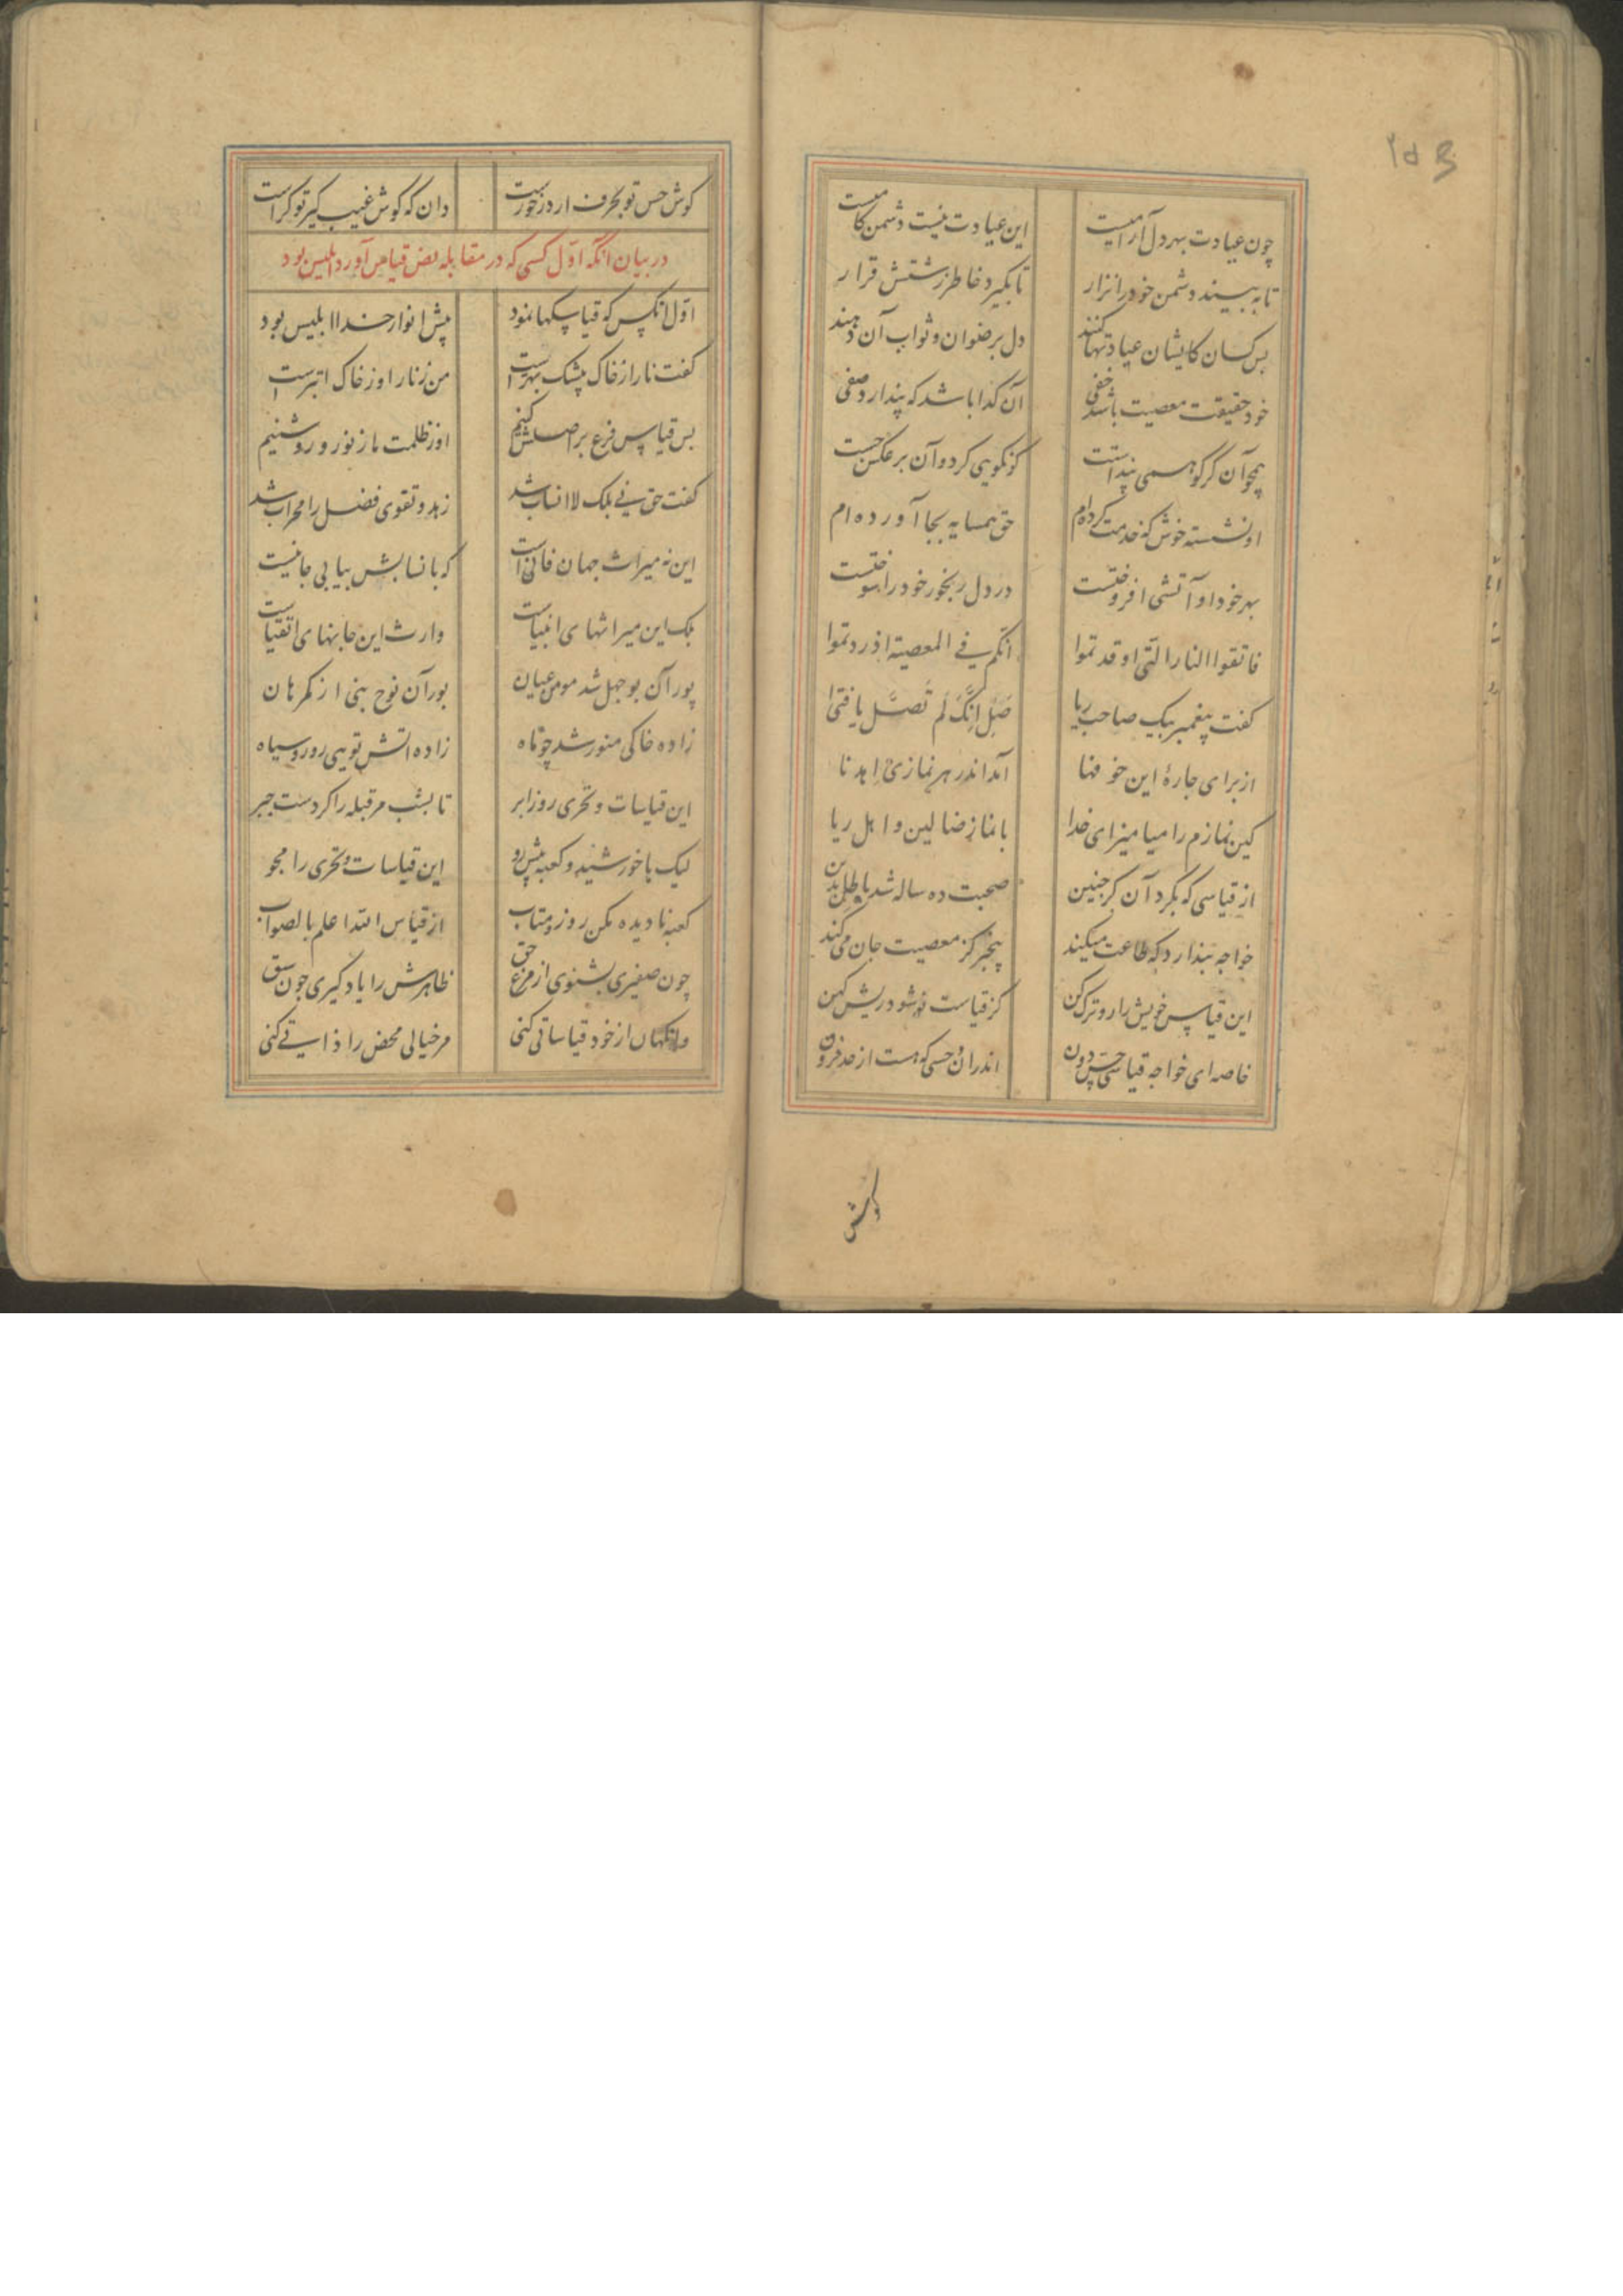 ۲۵۳
چون عیادت بهر دل آرامیست این عیادت نیست دشمن کامیست
تا به بیند دشمن خود را نزار تا بگیرد خاطر زشتش قرار
بس کسان کایشان عیادتها کنند دل برضوان و ثواب آن دهند
خود حقیقت معصیت باشد خفی آن کدا باشد که پندارد صفی
همچو آن کر کو همی پنداشتست کو نکویی کرد و آن برعکس جست
او نشسته خوش که خدمت کرده‌ام حق همسایه بجا آورده‌ام
بهر خود او آتشی افروختست در دل رنجور خود را سوختست
فاتقوا النار التی اوقدتموا انکم فی المعصیة ازددتموا
کفت پیغمبر بیک صاحب ریا صَلِّ اِنَّکَ لَم تُصَلِّ یا فتی
از برای چارهٔ این خوفها آمد اندر هر نمازی اهدنا
کین نمازم را میامیز ای خدا با نماز ضالین و اهل ریا
از قیاسی که بکرد آن کر جنین صحبت ده ساله شد باطل بدین
خواجه پندارد که طاعت میکند بیخبر کز معصیت جان می‌کند
این قیاس خویش را رو ترک کن کز قیاست نو شود ریش کهن
خاصه ای خواجه قیاس حس دون اندر آن وحسی که هست از حد فزون
کوش
کوش حس تو بحرف ار درخورست دان که کوش غیب کیر تو کراست
در بیان آنکه اول کسی که در مقابله نص قیاس آورد ابلیس بود
اول آنکس که قیاسکها نمود پیش انوار خدا ابلیس بود
کفت نار از خاک بیشک بهترست من ز نار او ز خاک اتبرست
بس قیاس فرع بر اصلش کنیم او ز ظلمت ما ز نور روشنیم
کفت حق نی بلک لا انساب شد زهد و تقوی فضل را محراب شد
این نه میراث جهان فانی است که بانسابش بیابی جانیست
بلک این میراثهای انبیاست وارث این جانهای اتقیاست
پور آن بوجهل شد مومن عیان پور آن نوح نبی از کمرهان
زاده خاکی منور شد چو ماه زاده آتش تویی رو روسیاه
این قیاسات و تحری روز ابر تا بشب مر قبله را کردست جبر
لیک با خورشید و کعبه پیش رو این قیاسات و تحری را مجو
کعبه نادیده مکن رو زو متاب از قیاس الله اعلم بالصواب
چون صفیری بشنوی از مرغ حق ظاهرش را یاد کیری چون سبق
وانکهان از خود قیاساتی کنی مر خیالی محض را ذاتی کنی